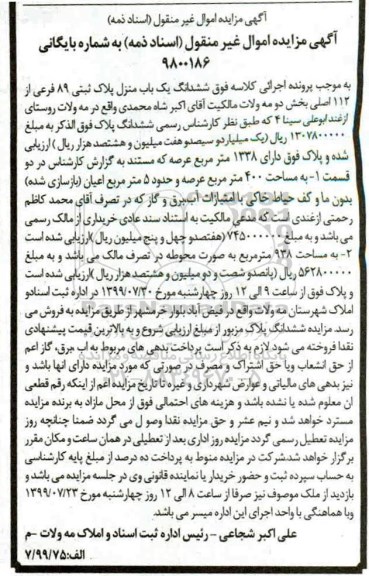 آگهی مزایده اموال غیر منقول (اسناد ذمه)
آگهی مزایده اموال غیر منقول (اسناد ذمه) به شماره بایگانی
۹۸۰۰۱۸۶
به موجب پرونده اجرائی کلاسه فوق ششدانگ یک باب منزل پلاک ثبتی ۸۹ فرعی از
۱۱۲ اصلی بخش دو مه ولات مالکیت آقای اکبر شاه محمدی واقع در مه ولات روستای
ازغند ابوعلی سینا ۴ که طبق نظر کارشناس رسمی ششدانگ پلاک فوق الذکر به مبلغ
۱۳۰۷۸۰۰۰۰۰ ریال (یک میلیارد و سیصد و هفت میلیون و هشتصد هزار ریال) ارزیابی
شده و پلاک فوق دارای ۱۳۳۸ متر مربع عرصه که مستند به گزارش کارشناس در دو
قسمت ۱- به مساحت ۴۰۰ متر مربع عرصه و حدود ۵ متر مربع اعیان (بازسازی شده)
بدون ما و کف حیاط خاکی با امتیازات آب،برق و گاز که در تصرف آقای محمد کاظم
رحمتی ازغندی است که مدعی مالکیت به استناد سند عادی خریداری از مالک رسمی
می باشد و به مبلغ ۷۴۵۰۰۰۰۰۰ (هفتصد و چهل و پنج میلیون ریال) ارزیابی شده است
۲- به مساحت ۹۳۸ مترمربع به صورت محوطه در تصرف مالک می باشد و به مبلغ
۵۶۲۸۰۰۰۰۰ ریال (پانصد و شصت و دو میلیون و هشتصد هزار ریال) ارزیابی شده است
و پلاک فوق از ساعت ۹ الی ۱۲ روز چهارشنبه مورخ ۱۳۹۹/۰۷/۳۰ در اداره ثبت اسناد و
املاک شهرستان مه ولات واقع در فیض آباد بلوار خرمشهر از طریق مزایده به فروش می
رسد. مزایده ششدانگ پلاک مزبور از مبلغ ارزیابی شروع و به بالاترین قیمت پیشنهادی
نقدا فروخته می شود. لازم به ذکر است پرداخت بدهی های مربوط به آب، برق، گاز اعم
از حق انشعاب و یا حق اشتراک و مصرف در صورتی که مورد مزایده دارای آنها باشد و
نیز بدهی های مالیاتی و عوارض شهرداری و غیره تا تاریخ مزایده اعم از اینکه رقم قطعی
آن معلوم شده یا نشده باشد و هزینه های احتمالی فوق از محل مازاد به برنده مزایده
مسترد خواهد شد و نیم عشر و حق مزایده نقدا وصول می گردد ضمنا چنانچه روز
مزایده تعطیل رسمی گردد مزایده روز اداری بعد از تعطیلی در همان ساعت و مکان مقرر
برگزار خواهد شد. شرکت در مزایده منوط به پرداخت ده درصد از مبلغ پایه کارشناسی
به حساب سپرده ثبت و حضور خریدار یا نماینده قانونی وی در جلسه مزایده می باشد و
بازدید از ملک موصوف نیز صرفا از ساعت ۸ الی ۱۲ روز چهارشنبه مورخ ۱۳۹۹/۰۷/۲۳
و با هماهنگی با واحد اجرای این اداره میسر می باشد.
علی اکبر شجاعی - رئیس اداره ثبت اسناد و املاک مه ولات -م
الف:۷/۹۹/۷۵